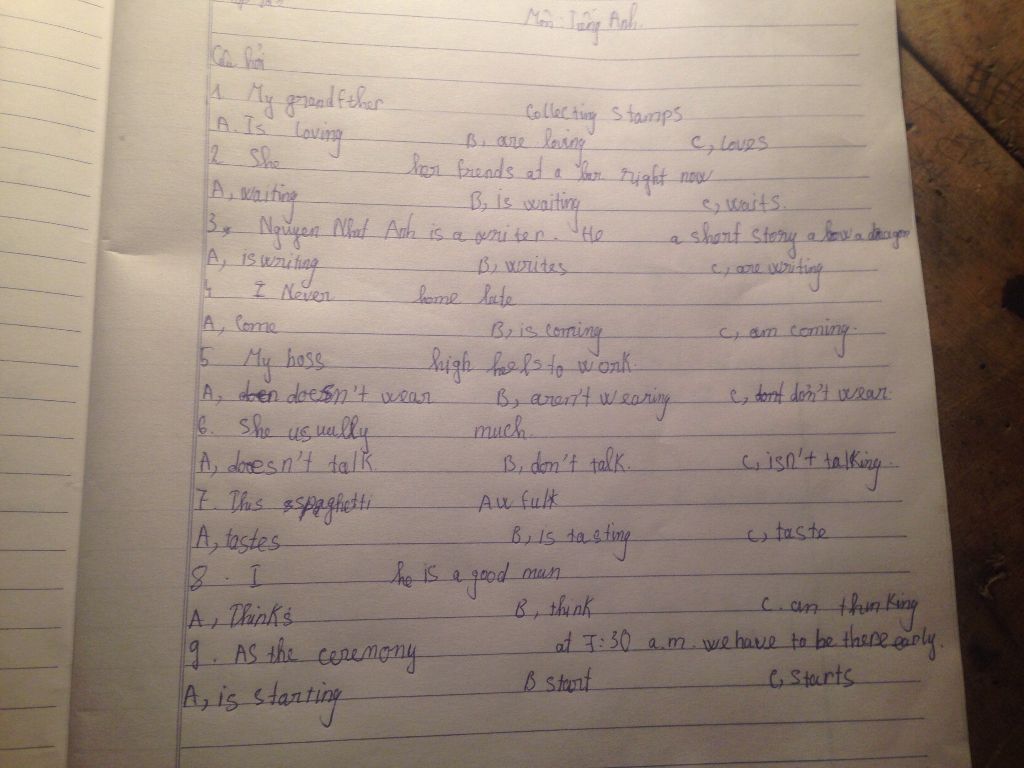 Môn: Tiếng Anh
Câu hỏi
1 My grandfther collecting stamps
A. Is loving B, are loving C, loves
2 She her friends at a bar right now
A, waiting B, is waiting c, waits.
3, Nguyen Nhat Anh is a writer. He a short story a dragon
A, is writing B, writes c, are writing
4 I Never home late
A, Come B, is coming c, am coming.
5 My boss high heels to work.
A, doesn't wear B, aren't wearing c, don't wear
6. She usually much.
A, doesn't talk B, don't talk. c, isn't talking.
7. This spaghetti Awfulk
A, tastes B, is tasting c, taste
8. I he is a good man
A, Thinks B, think C. am thinking
9. AS the ceremony at 7:30 a.m. we have to be there early.
A, is starting B start C, starts